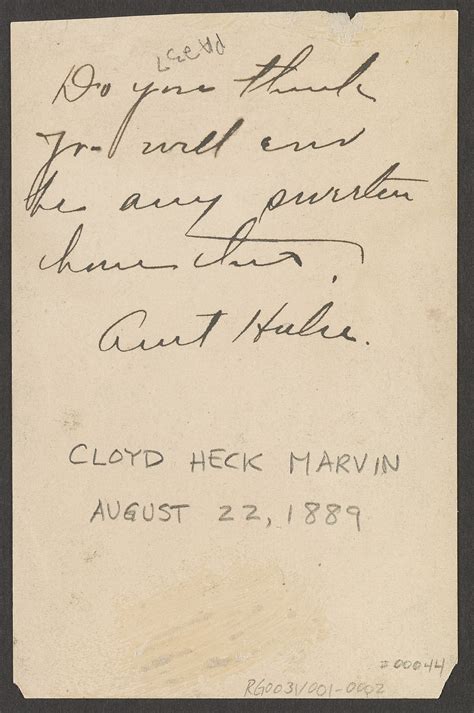 PA 237
Do you think
Jr- will ever
be any sweeter
than this,
Aunt
CLOYD HECK MARVIN
AUGUST 22, 1889
=00044
RG0031/001-0002